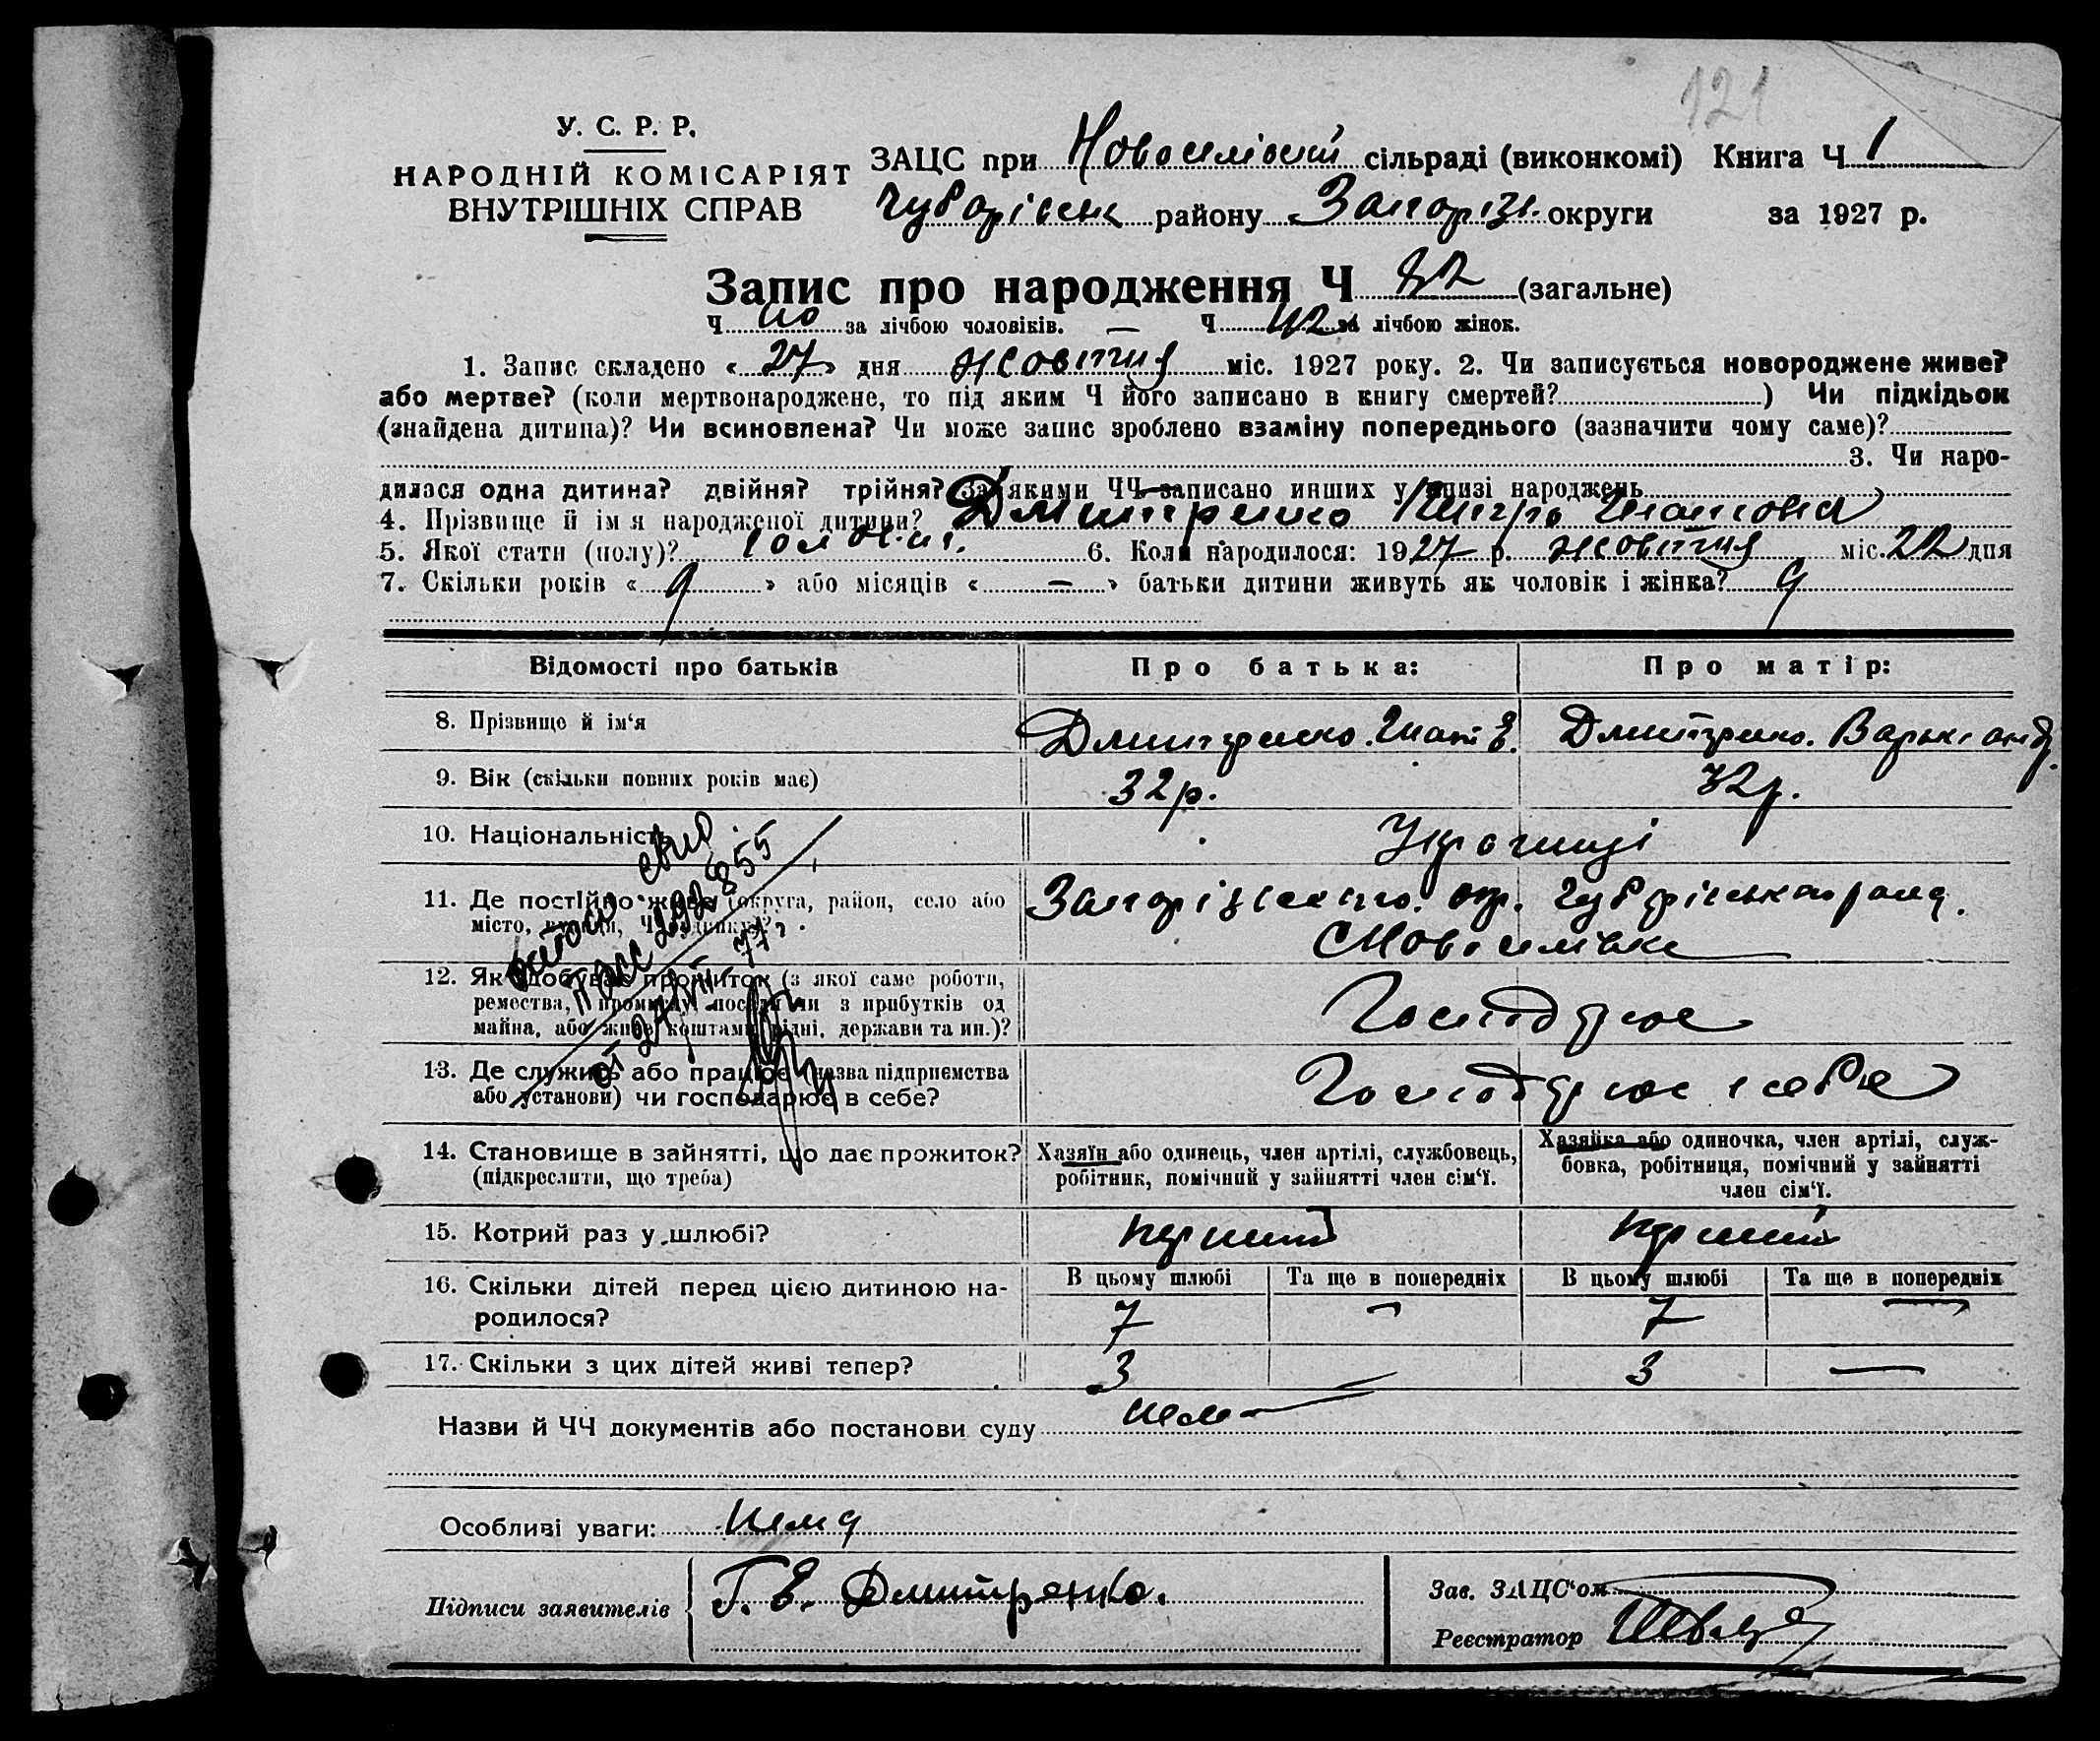 121
У. С. Р. Р.
НАРОДНІЙ КОМІСАРІЯТ
ВНУТРІШНІХ СПРАВ
ЗАЦС при Новоселівській сільраді (виконкомі) Книга Ч 1
району Запоріз. округи за 1927 р.
Запис про народження Ч 82 (загальне)
Ч 40 за лічбою чоловіків. — Ч 42 за лічбою жінок.
1. Запис складено «27» дня жовтня міс. 1927 року. 2. Чи записується новороджене живе?
або мертве? (коли мертвонароджене, то під яким Ч його записано в книгу смертей?) Чи підкідьок
(знайдена дитина)? Чи всиновлена? Чи може запис зроблено взаміну попереднього (зазначити чому саме)?
3. Чи наро-
дилася одна дитина? двійня? трійня? За якими ЧЧ записано инших у книзі народжень
4. Прізвище й ім я народженої дитини? Дмитренко
5. Якої стати (полу)? 6. Коли народилося: 1927 р. жовтня міс. 22 дня
7. Скільки років « 9 » або місяців « — » батьки дитини живуть як чоловік і жінка? 9
Відомості про батьків
Про батька:
Про матір:
8. Прізвище й ім‘я
Дмитренко
Дмитренко
9. Вік (скільки повних років має)
32 р.
32 р.
10. Національність
Українці
11. Де постійно живе (округа, район, село або
місто, вулиця, Ч будинку)?
12. Як здобуває прожиток (з якої саме роботи,
ремества, промислу, посади чи з прибутків од
майна, або живе коштами рідні, держави та ин.)?
Господарює
13. Де служить або працює (назва підприємства
або установи) чи господарює в себе?
Господарює в себе
14. Становище в зайнятті, що дає прожиток?
(підкреслити, що треба)
Хазяїн або одинець, член артілі, службовець,
робітник, помічний у зайнятті член сім‘ї.
Хазяйка або одиночка, член артілі, служ-
бовка, робітниця, помічний у зайнятті
член сім‘ї.
15. Котрий раз у шлюбі?
перший
перший
16. Скільки дітей перед цією дитиною на-
родилося?
В цьому шлюбі
Та ще в попередніх
В цьому шлюбі
Та ще в попередніх
7
—
7
—
17. Скільки з цих дітей живі тепер?
3
—
3
—
Назви й ЧЧ документів або постанови суду нема
Особливі уваги: нема
Підписи заявителів
Г. Е. Дмитренко.
Зав. ЗАЦС‘ом
Реєстратор